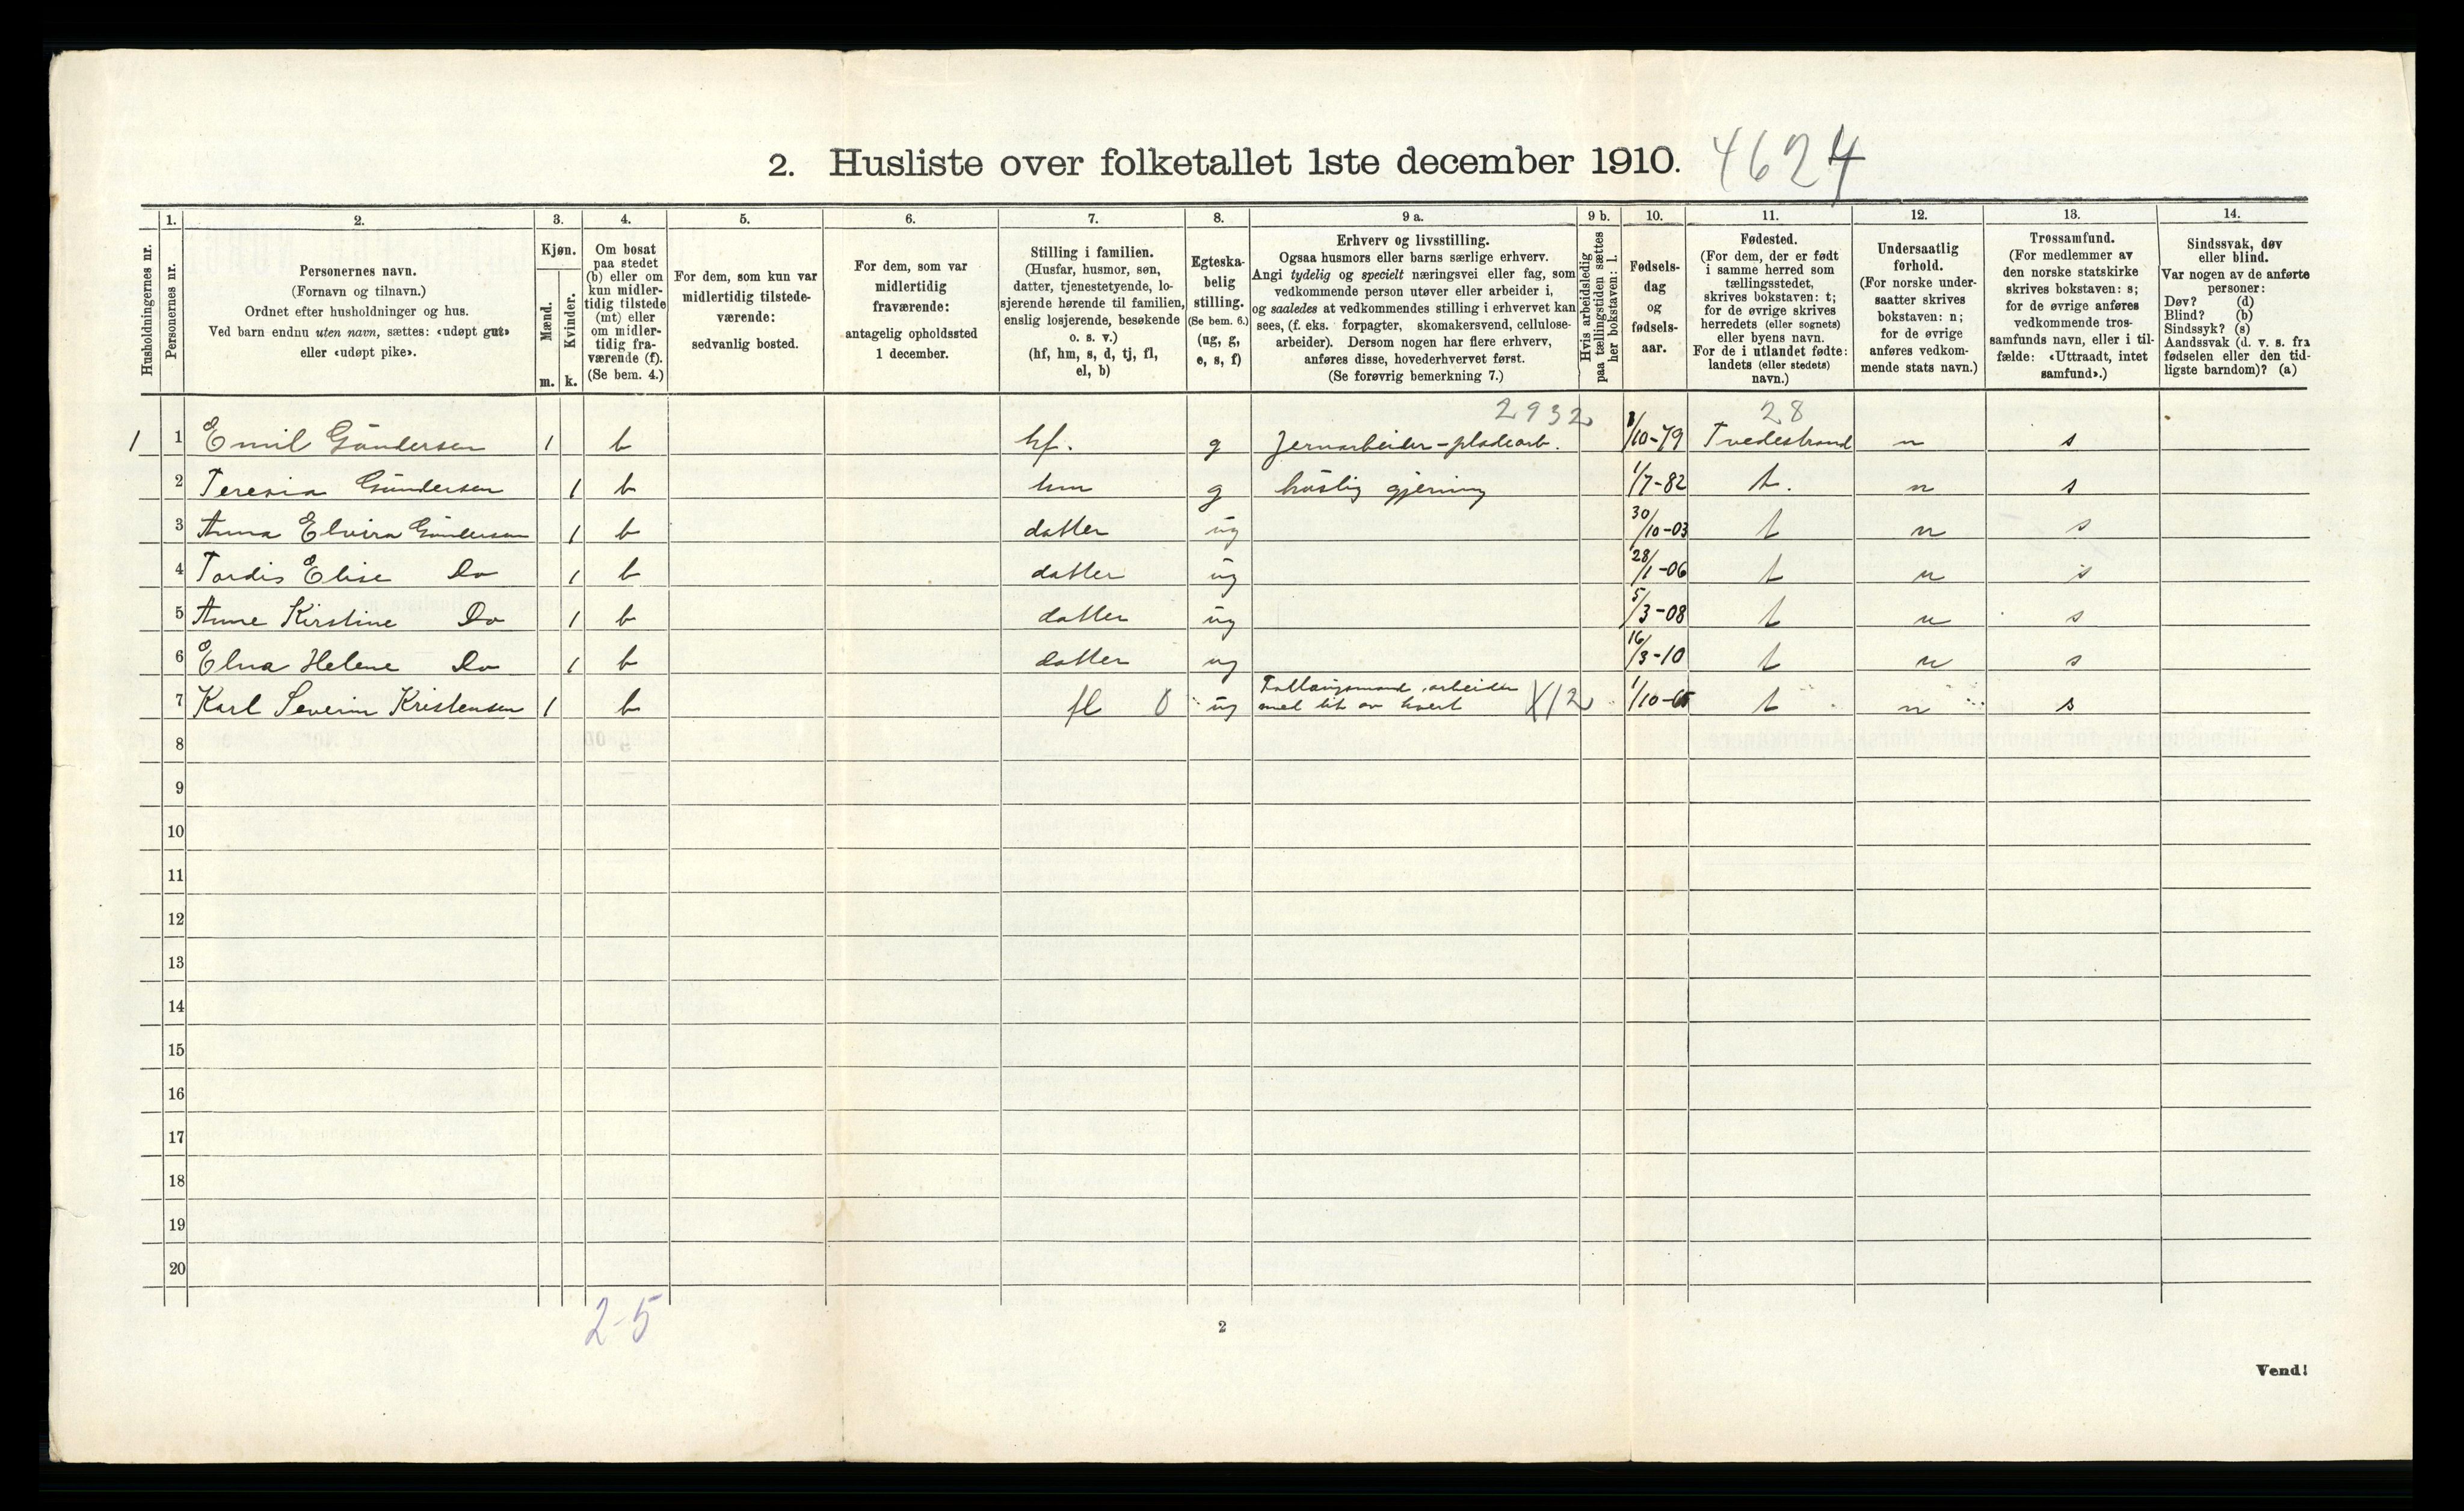 2. Husliste over folketallet 1ste december 1910. 4624
Husholdningernes nr.
1.
Personernes nr.
2.
Personernes navn.
(Fornavn og tilnavn.)
Ordnet efter husholdninger og hus.
Ved barn endnu uten navn, sættes: «udøpt gut»
eller «udøpt pike».
3.
Kjøn.
Mænd.
Kvinder.
m. k.
4.
Om bosat
paa stedet
(b) eller om
kun midler-
tidig tilstede
(mt) eller
om midler-
tidig fra-
værende (f).
(Se bem. 4.)
5.
For dem, som kun var
midlertidig tilstede-
værende:
sedvanlig bosted.
6.
For dem, som var
midlertidig
fraværende:
antagelig opholdssted
1 december.
7.
Stilling i familien.
(Husfar, husmor, søn,
datter, tjenestetyende, lo-
sjerende hørende til familien,
enslig losjerende, besøkende
o. s. v.)
(hf, hm, s, d, tj, fl,
el, b)
8.
Egteska-
belig
stilling.
(Se bem. 6.)
(ug, g,
e, s, f)
9 a.
Erhverv og livsstilling.
Ogsaa husmors eller barns særlige erhverv.
Angi tydelig og specielt næringsvei eller fag, som
vedkommende person utøver eller arbeider i,
og saaledes at vedkommendes stilling i erhvervet kan
sees, (f. eks. forpagter, skomakersvend, cellulose-
arbeider). Dersom nogen har flere erhverv,
anføres disse, hovederhvervet først.
(Se forøvrig bemerkning 7.)
9 b.
Hvis arbeidsledig
paa tællingstiden sættes
her bokstaven: l.
10.
Fødsels-
dag
og
fødsels-
aar.
11.
Fødested.
(For dem, der er født
i samme herred som
tællingsstedet,
skrives bokstaven: t;
for de øvrige skrives
herredets (eller sognets)
eller byens navn.
For de i utlandet fødte:
landets (eller stedets)
navn.)
12.
Undersaatlig
forhold.
(For norske under-
saatter skrives
bokstaven: n;
for de øvrige
anføres vedkom-
mende stats navn.)
13.
Trossamfund.
(For medlemmer av
den norske statskirke
skrives bokstaven: s;
for de øvrige anføres
vedkommende tros-
samfunds navn, eller i til-
fælde: «Uttraadt, intet
samfund».)
14.
Sindssvak, døv
eller blind.
Var nogen av de anførte
personer:
Døv? (d)
Blind? (b)
Sindssyk? (s)
Aandssvak (d. v. s. fra
fødselen eller den tid-
ligste barndom)? (a)
2932 28
1 1 Emil Gundersen 1 b hf. g Jernarbeider - pladearb. 1/10-79 Tvedestrand n s
2 Teresia Gundersen 1 b hm g huslig gjerning 1/7-82 t. n s
3 Anna Elvira Gundersen 1 b datter ug 30/10-03 t n s
4 Tordis Elise Do 1 b datter ug 28/1-06 t n s
5 Anne Kirstine Do 1 b datter ug 5/3-08 t n s
6 Elna Helene Do 1 b datter ug 16/3-10 t n s
7 Karl Severin Kristensen 1 b fl 0 ug arbeider
med lit av hvert X12 1/10- t n s
8
9
10
11
12
13
14
15
16
17
18
19
20
2-5
2
Vend!